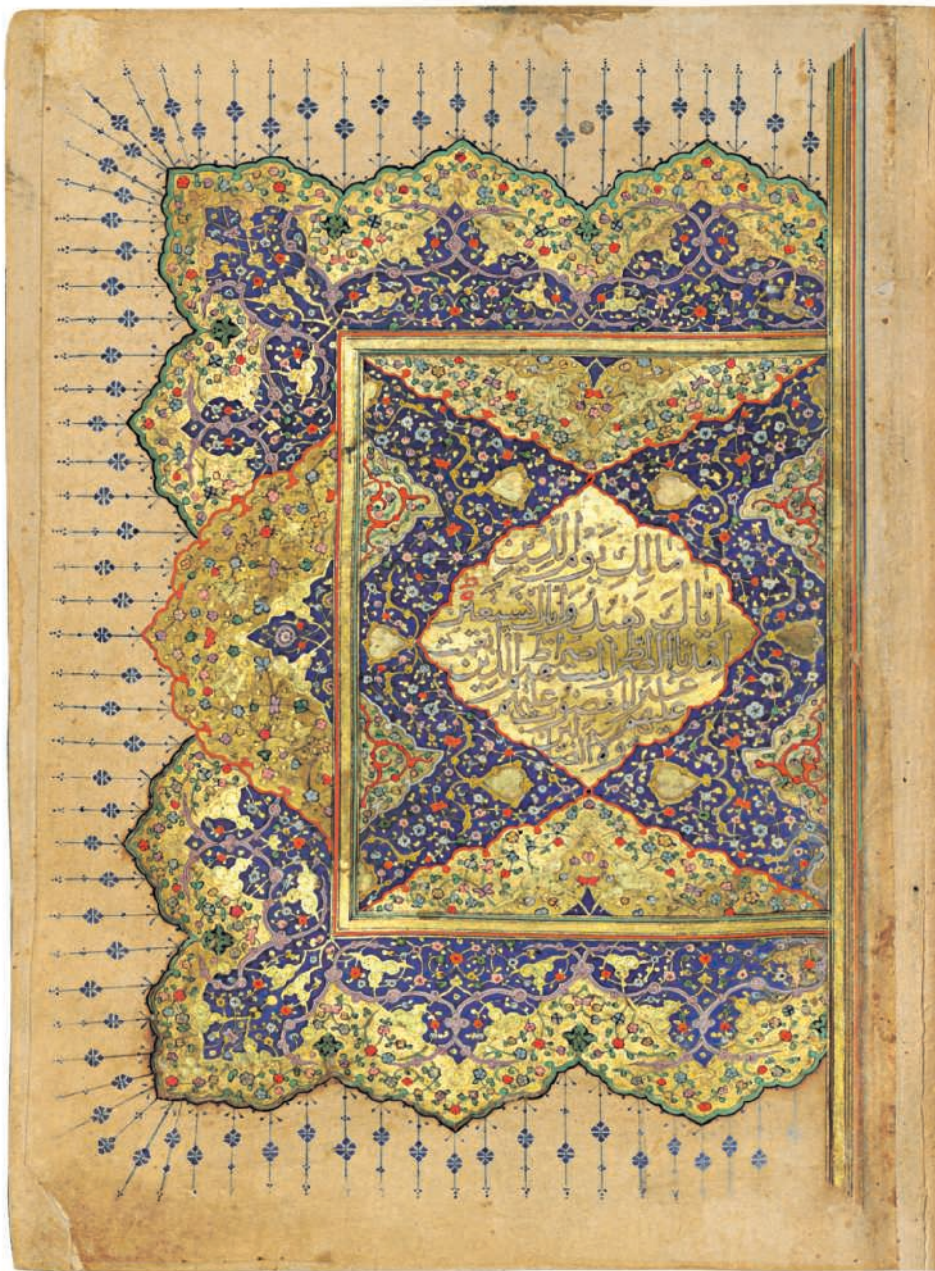 مالك يوم الدين
اياك نعبد واياك نستعين
اهدنا الصراط المستقيم صراط الذين انعمت
عليهم غير المغضوب عليهم
ولا الضالين